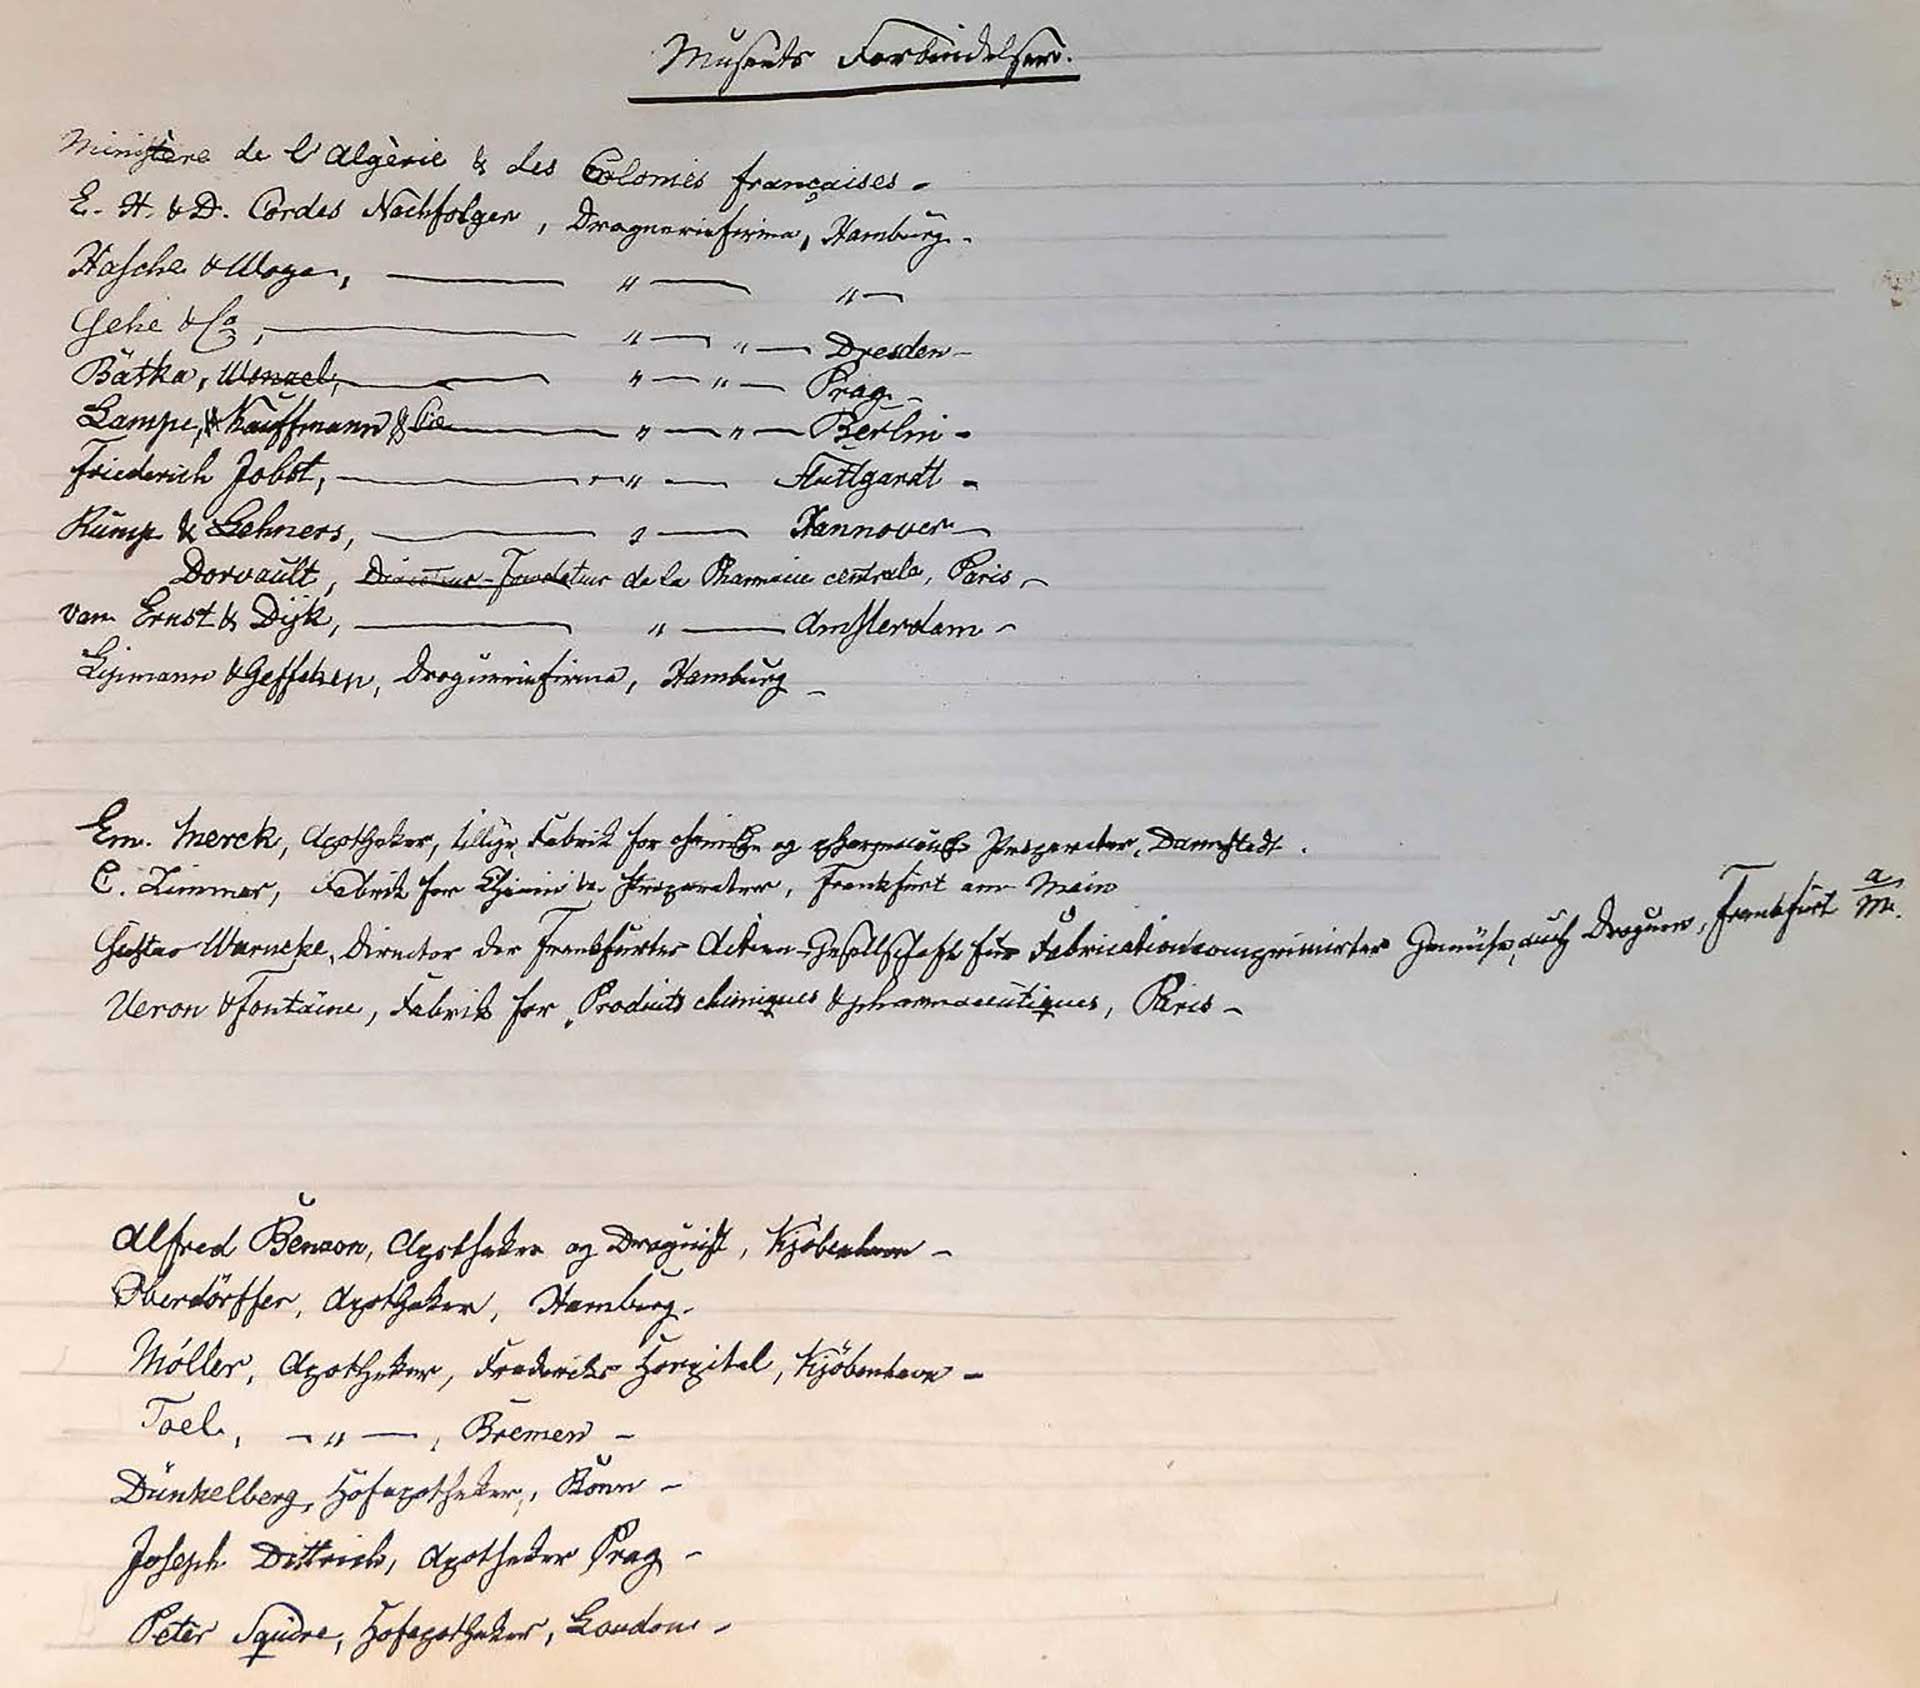 Museets Forbindelser.
Ministère de l'Algèrie & des Colonies françaises -
E. H. & D. Cordes Nachfolger, Drogueriefirma, Hamburg -
Hasche & Woge, — " — " —
Gehe & Co, — " — " — Dresden -
Batka, Wenzel, — " — " — Prag -
Lampe, & Kauffmann & Cie — " — " — Berlin -
Friederich Jobst, — " — Stuttgardt -
Rump & Lehners, — " — Hannover -
Dorvault, Directeur-Fondateur de la Pharmacie centrale, Paris -
van Ernst & Dijk, — " — Amsterdam -
& Geffcken, Droguerifirma, Hamburg -
Em. Merck, Apotheker, tillige Fabrik for chemiske og pharmaceutiske Præparater, Darmstadt.
C. Zimmer, Fabrik for Præparater, Frankfurt am Main
Gustav Warnecke, Director der Frankfurter Actien-Gesellschaft für Fabrication comprimirter Gemüse, auch Droguen, Frankfurt a/M.
Veron & Fontaine, Fabrik for "Produits chimiques & pharmaceutiques, Paris -
Alfred Benzon, Apotheker og Droguist, Kjöbenhavn -
Oberdörffer, Apotheker, Hamburg -
Möller, Apotheker, Frederiks Hospital, Kjöbenhavn -
Toel, - " —, Bremen -
Dünkelberg, Hofapotheker, Bonn -
Joseph Dittrich, Apotheker Prag -
Peter Squire, Hofapotheker, London -